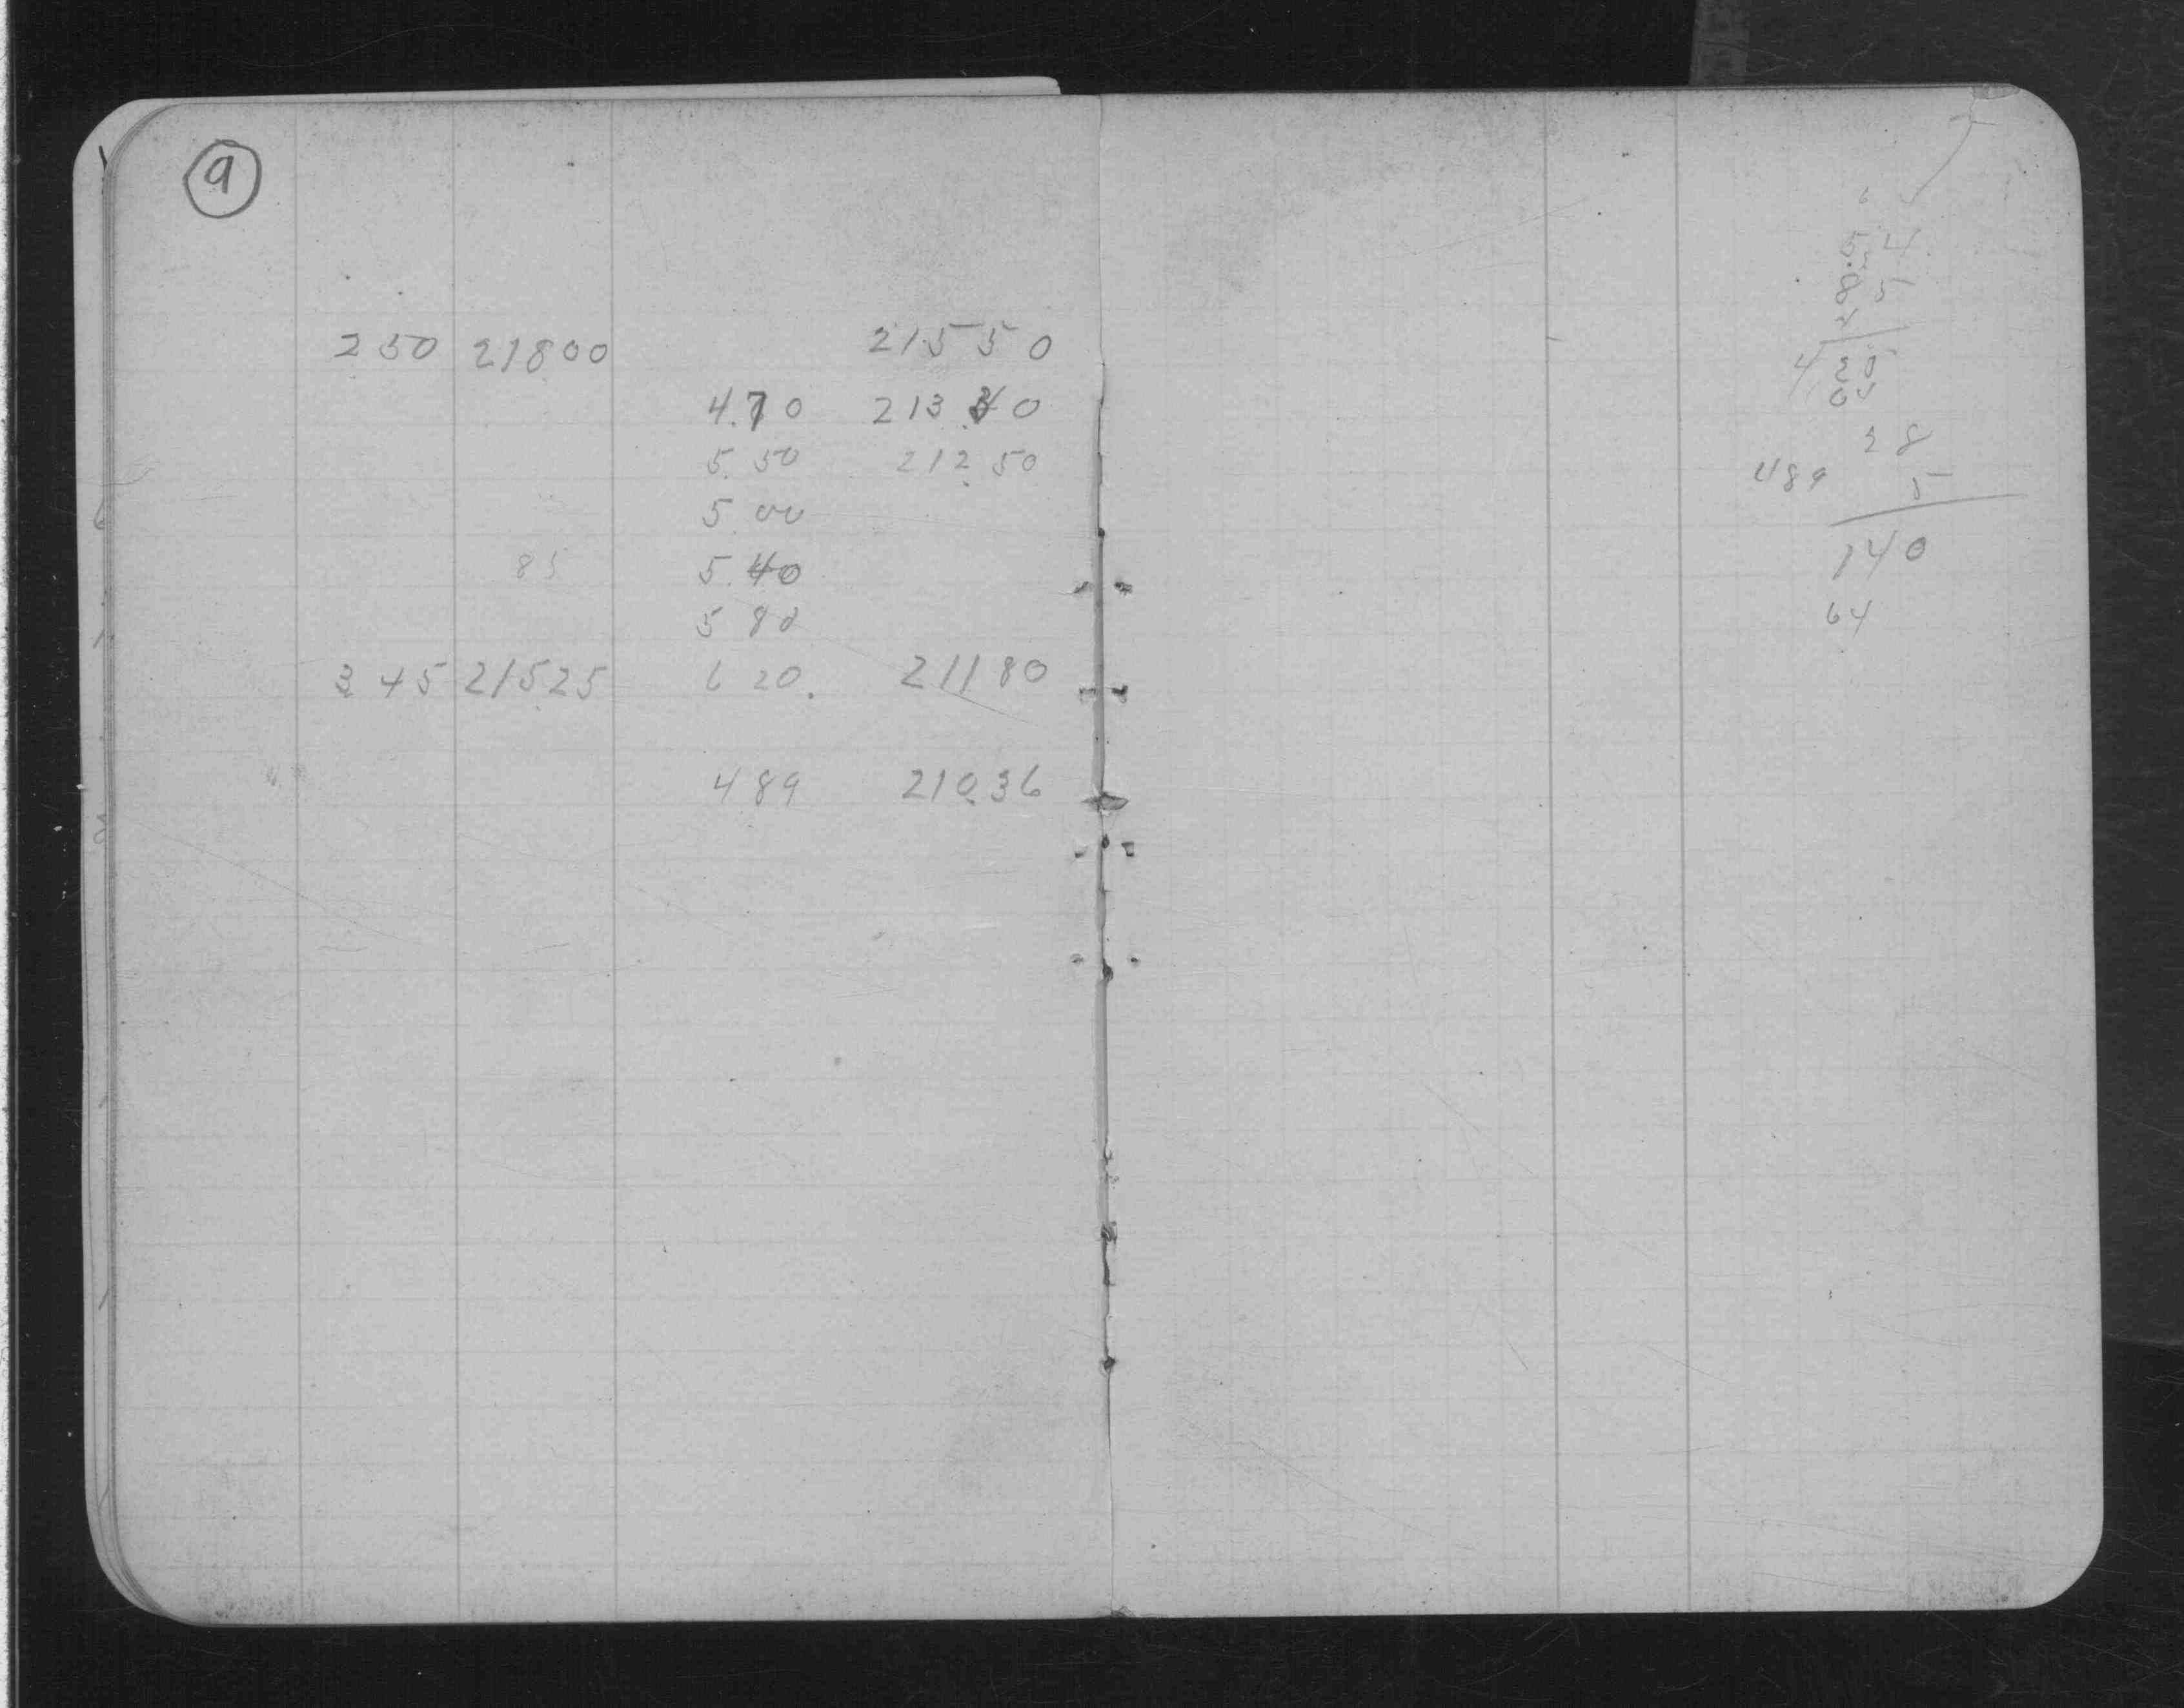 9
250 21800 21550
4.70 213 0
5.50 212.50
5.00
85 5.40
5 80
3.45 215.25 6 20. 211 80
4 89 210.36
4
5
4
28
489 5
140
64